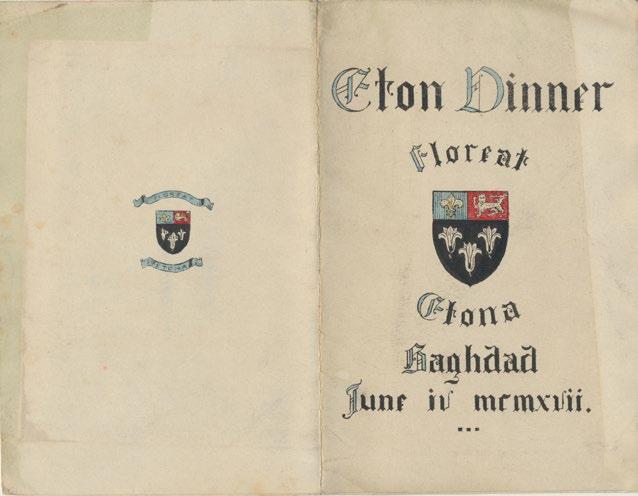 FLOREAT
ETONA
Eton Dinner
Floreat
Etona
Baghdad
June iv mcmxvii.